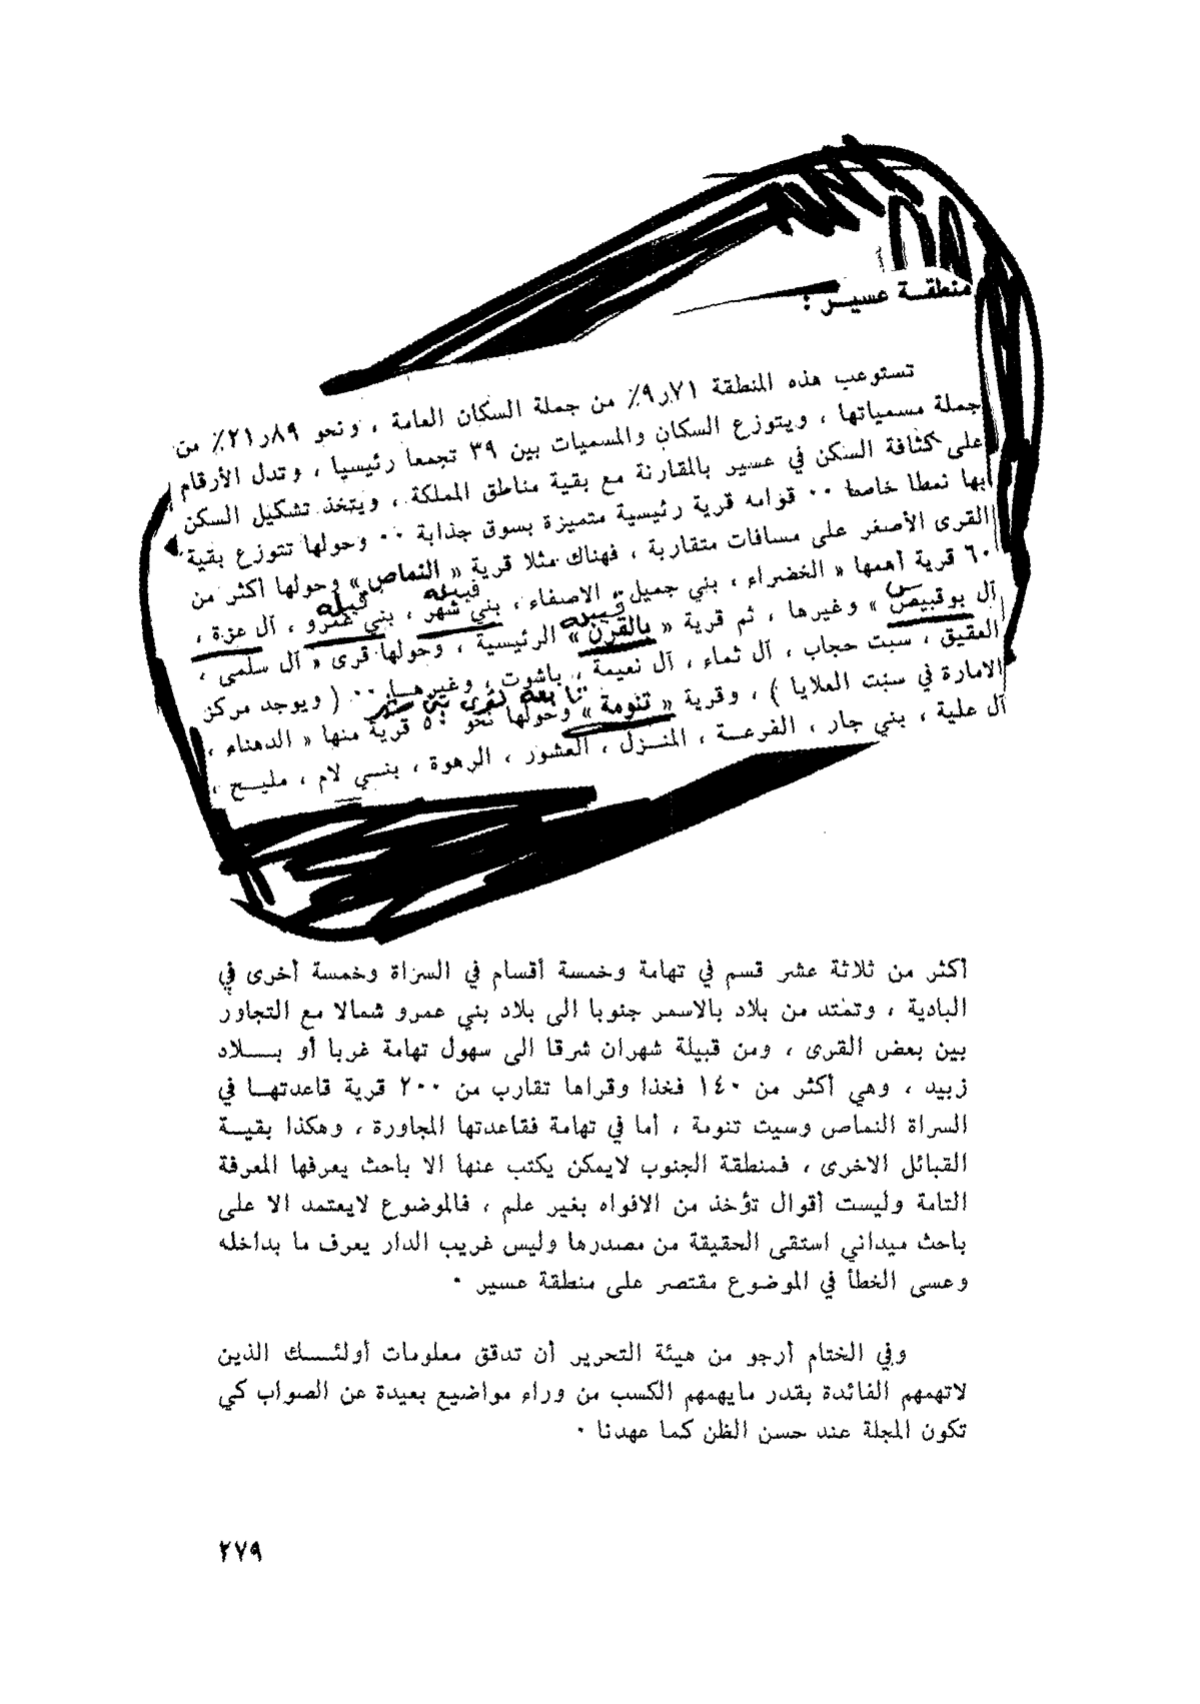 منطقـة عسيـر :
تستوعب هذه المنطقة ٩٫٧١٪ من جملة السكان العامة ، ونحو ٢١٫٨٩٪ من
جملة مسمياتها ، ويتوزع السكان والمسميات بين ٣٩ تجمعا رئيسيا ، وتدل الأرقام
على كثافة السكن في عسير بالمقارنة مع بقية مناطق المملكة ، ويتخذ تشكيل السكن
بها نمطا خاصا ٠٠ قوامه قرية رئيسية متميزة بسوق جذابة ٠٠ وحولها تتوزع بقية
القرى الأصغر على مسافات متقاربة ، فهناك مثلا قرية « النماص » وحولها أكثر من
٦٠ قرية أهمها « الخضراء ، بني جميل ، الاصفاء ، قبيلة بني شهر ، قبيلة بني عمرو ، آل عزة ،
آل بوقبيص » وغيرها ، ثم قرية « بالقرن » قبيلة الرئيسية ، وحولها قرى « آل سلمى ،
العقيق ، سبت حجاب ، آل ثماء ، آل نعيمة ، باشوت ، وغيرهـا ٠٠ ( ويوجد مركز
الامارة في سبت العلايا ) ، وقرية « تنومة » تابعة لقرى بني شهر وحولها نحو ٥٠ قرية منها « الدهناء ،
آل علية ، بني جار ، الفرعـة ، المنـزل ، العشور ، الرهوة ، بنـي لام ، مليـح ،
أكثر من ثلاثة عشر قسم في تهامة وخمسة أقسام في السراة وخمسة أخرى في
البادية ، وتمتد من بلاد بالاسمر جنوبا الى بلاد بني عمرو شمالا مع التجاور
بين بعض القرى ، ومن قبيلة شهران شرقا الى سهول تهامة غربا أو بـــلاد
زبيد ، وهي أكثر من ١٤٠ فخذا وقراها تقارب من ٢٠٠ قرية قاعدتهـا في
السراة النماص وسبت تنومة ، أما في تهامة فقاعدتها المجاورة ، وهكذا بقيـة
القبائل الاخرى ، فمنطقة الجنوب لايمكن يكتب عنها الا باحث يعرفها المعرفة
التامة وليست أقوال تؤخذ من الافواه بغير علم ، فالموضوع لايعتمد الا على
باحث ميداني استقى الحقيقة من مصدرها وليس غريب الدار يعرف ما بداخله
وعسى الخطأ في الموضوع مقتصر على منطقة عسير ٠
وفي الختام أرجو من هيئة التحرير أن تدقق معلومات أولئـــك الذين
لاتهمهم الفائدة بقدر مايهمهم الكسب من وراء مواضيع بعيدة عن الصواب كي
تكون المجلة عند حسن الظن كما عهدنا ٠
٢٧٩